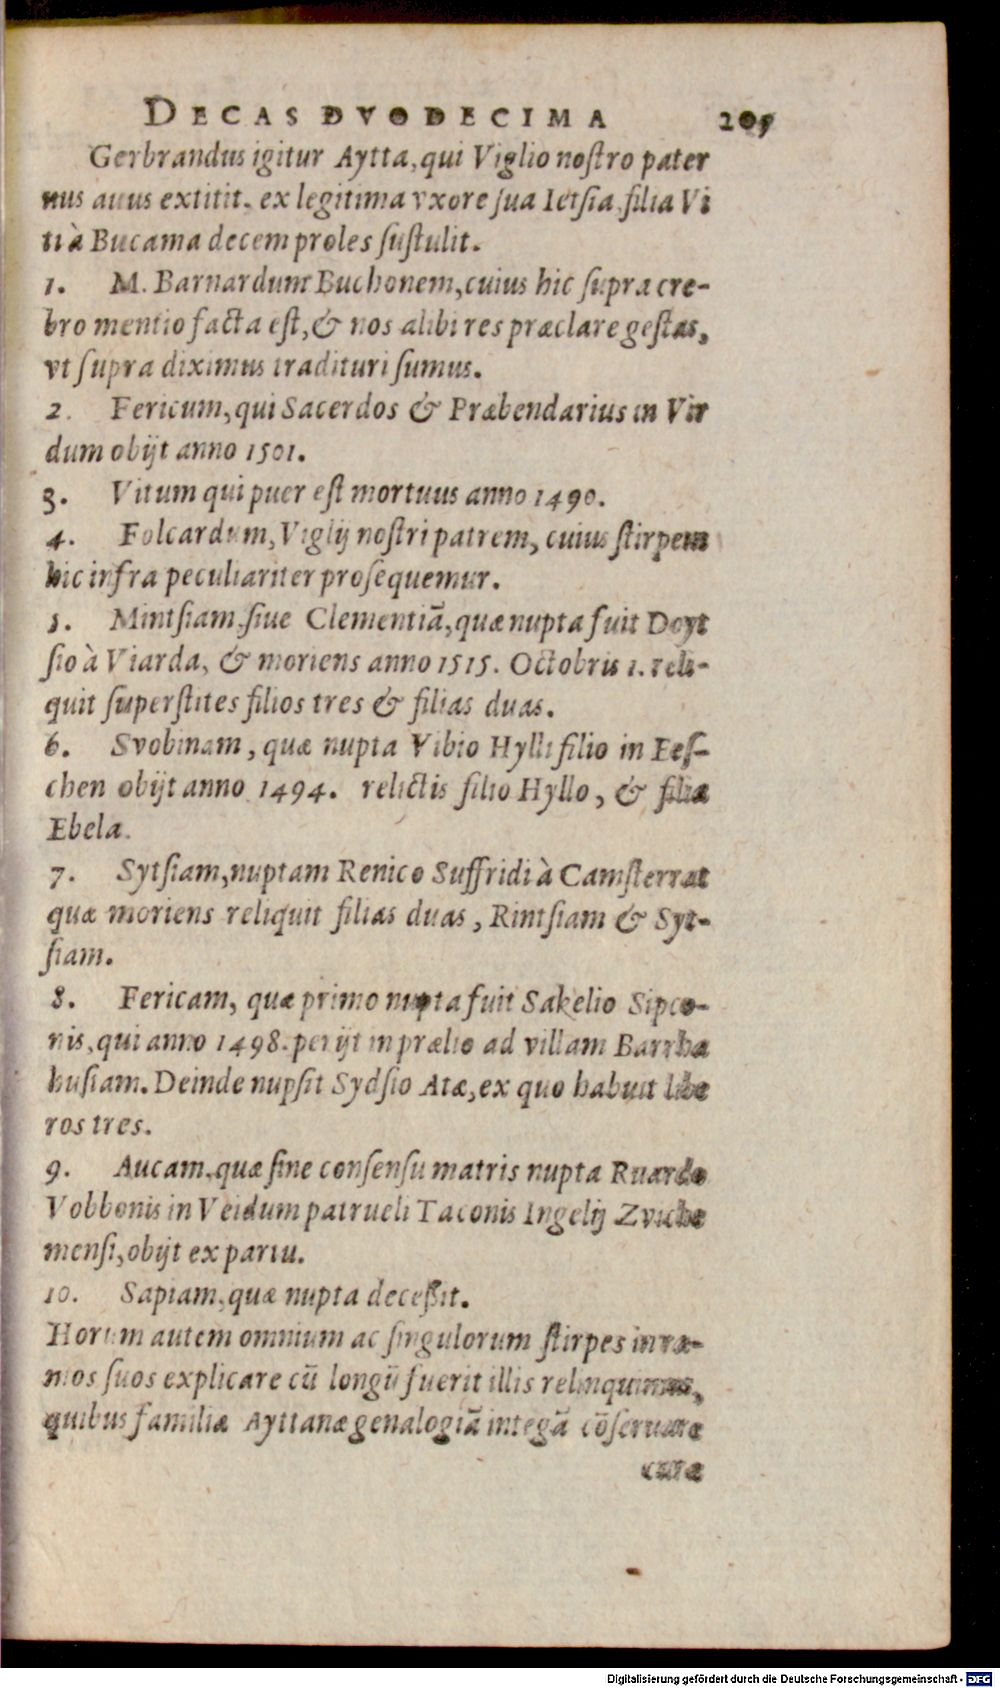 DECAS DVODECIMA 205
Gerbrandus igitur Aytta, qui Viglio nostro pater
nus auus extitit. ex legitima vxore sua Ietsia filia Vi
ti à Bucama decem proles sustulit.
1. M. Barnardum Buchonem, cuius hic supra cre-
bro mentio facta est, & nos alibi res præclare gestas,
vt supra diximus tradituri sumus.
2. Fericum, qui Sacerdos & Præbendarius in Vir
dum obijt anno 1501.
3. Vitum qui puer est mortuus anno 1490.
4. Folcardum, Viglij nostri patrem, cuius stirpem
hic infra peculiariter prosequemur.
5. Mintsiam, siue Clementiã, quæ nupta fuit Doyt
sio à Viarda, & moriens anno 1515. Octobris 1. reli-
quit superstites filios tres & filias duas.
6. Svobinam, quæ nupta Vibio Hylli filio in Ees-
chen obijt anno 1494. relictis filio Hyllo, & filia
Ebela.
7. Sytsiam, nuptam Renico Suffridi à Camsterrat
quæ moriens reliquit filias duas, Rintsiam & Syt-
siam.
8. Fericam, quæ primo nupta fuit Sakelio Sipco-
nis, qui anno 1498. perijt in prælio ad villam Barrha
husiam. Deinde nupsit Sydsio Atæ, ex quo habuit libe
ros tres.
9. Aucam, quæ sine consensu matris nupta Ruardo
Vobbonis in Veidum patrueli Taconis Ingelij Zviche
mensi, obijt ex partu.
10. Sapiam, quæ nupta decessit.
Horum autem omnium ac singulorum stirpes in ra-
mos suos explicare cũ longũ fuerit illis relinquimus,
quibus familiæ Ayttanæ genalogiã integã cõseruare
curæ
Digitalisierung gefördert durch die Deutsche Forschungsgemeinschaft - DFG